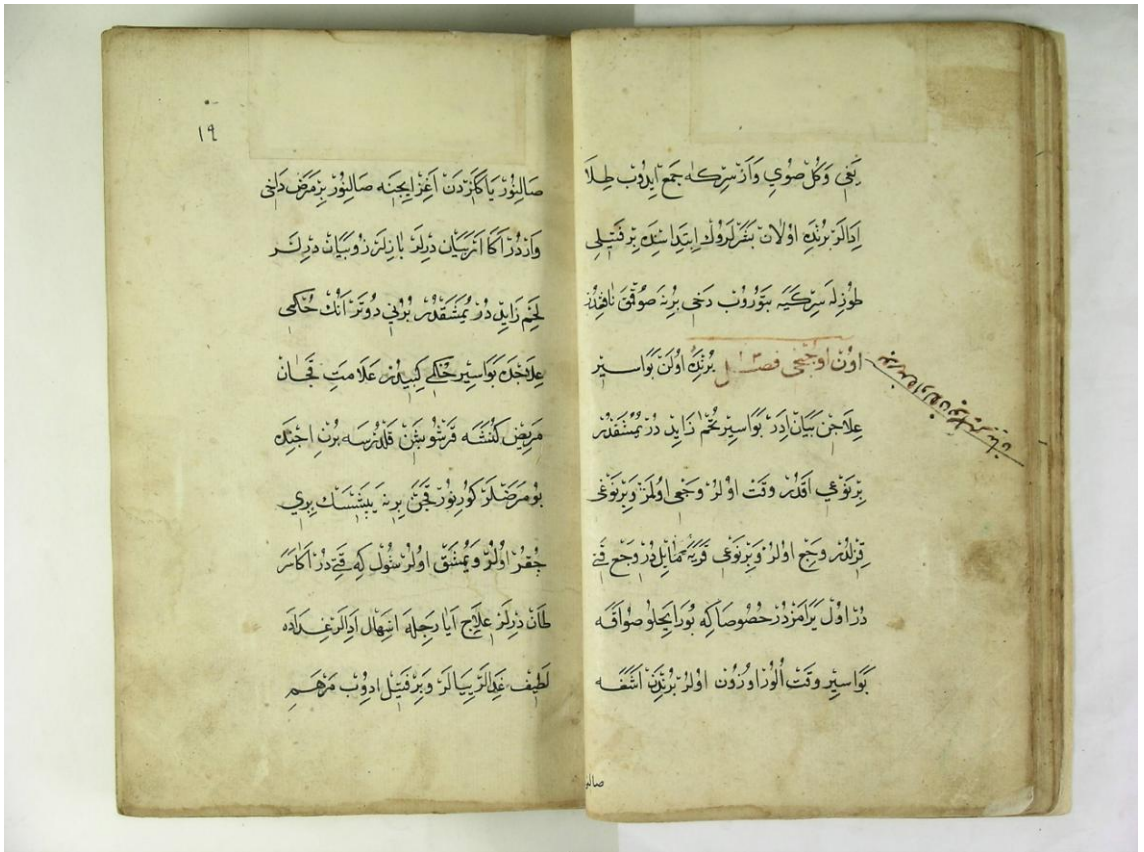 يغى وكل صويى وآز سركه جمع ايدوب طلا
ايدالر برنده اولان بثرلروك ابتداسنده بر فتيلى
طوزله سركيه بتوروب دخى برنه صوقق نافعدر
اون اوچنجى فصل برنده اولن بواسير
علاجن بيان ادر بواسير لحم زايد در يمشقدر
بر نوعى اقدر وقت اولر وجعى اولمز وبر نوعى
قزلدر وجع اولر وبر نوعى قريه مايل در وجع قتى
در اول يرامزدر خصوصا كه بورايحلو صو اقه
بواسير وقت الور اوزون اولر برندن اشغه
صالنور
١٩
صالنور يا كازدن اغز ايچنه صالنور بر مرض داخى
واردر اكا اربيان درلر بازيلر زوبيان درلر
لحم زايد در يمشقدر برنى دوتر انك حكمى
علاجده بواسير حكمى كبيدر علامت قچان
مريض كنشه قرشو بشن قلدرسه برن اچنده
بو مرضلر كورنور قچن برنه يبشسك برى
چقر اولر ويمشق اولر شول كه قتى در اكا سر
طان درلر علاج ايارجله اسهال ادالر غداده
لطيف غدالر ييالر وبر فتيل ادوب مرهم